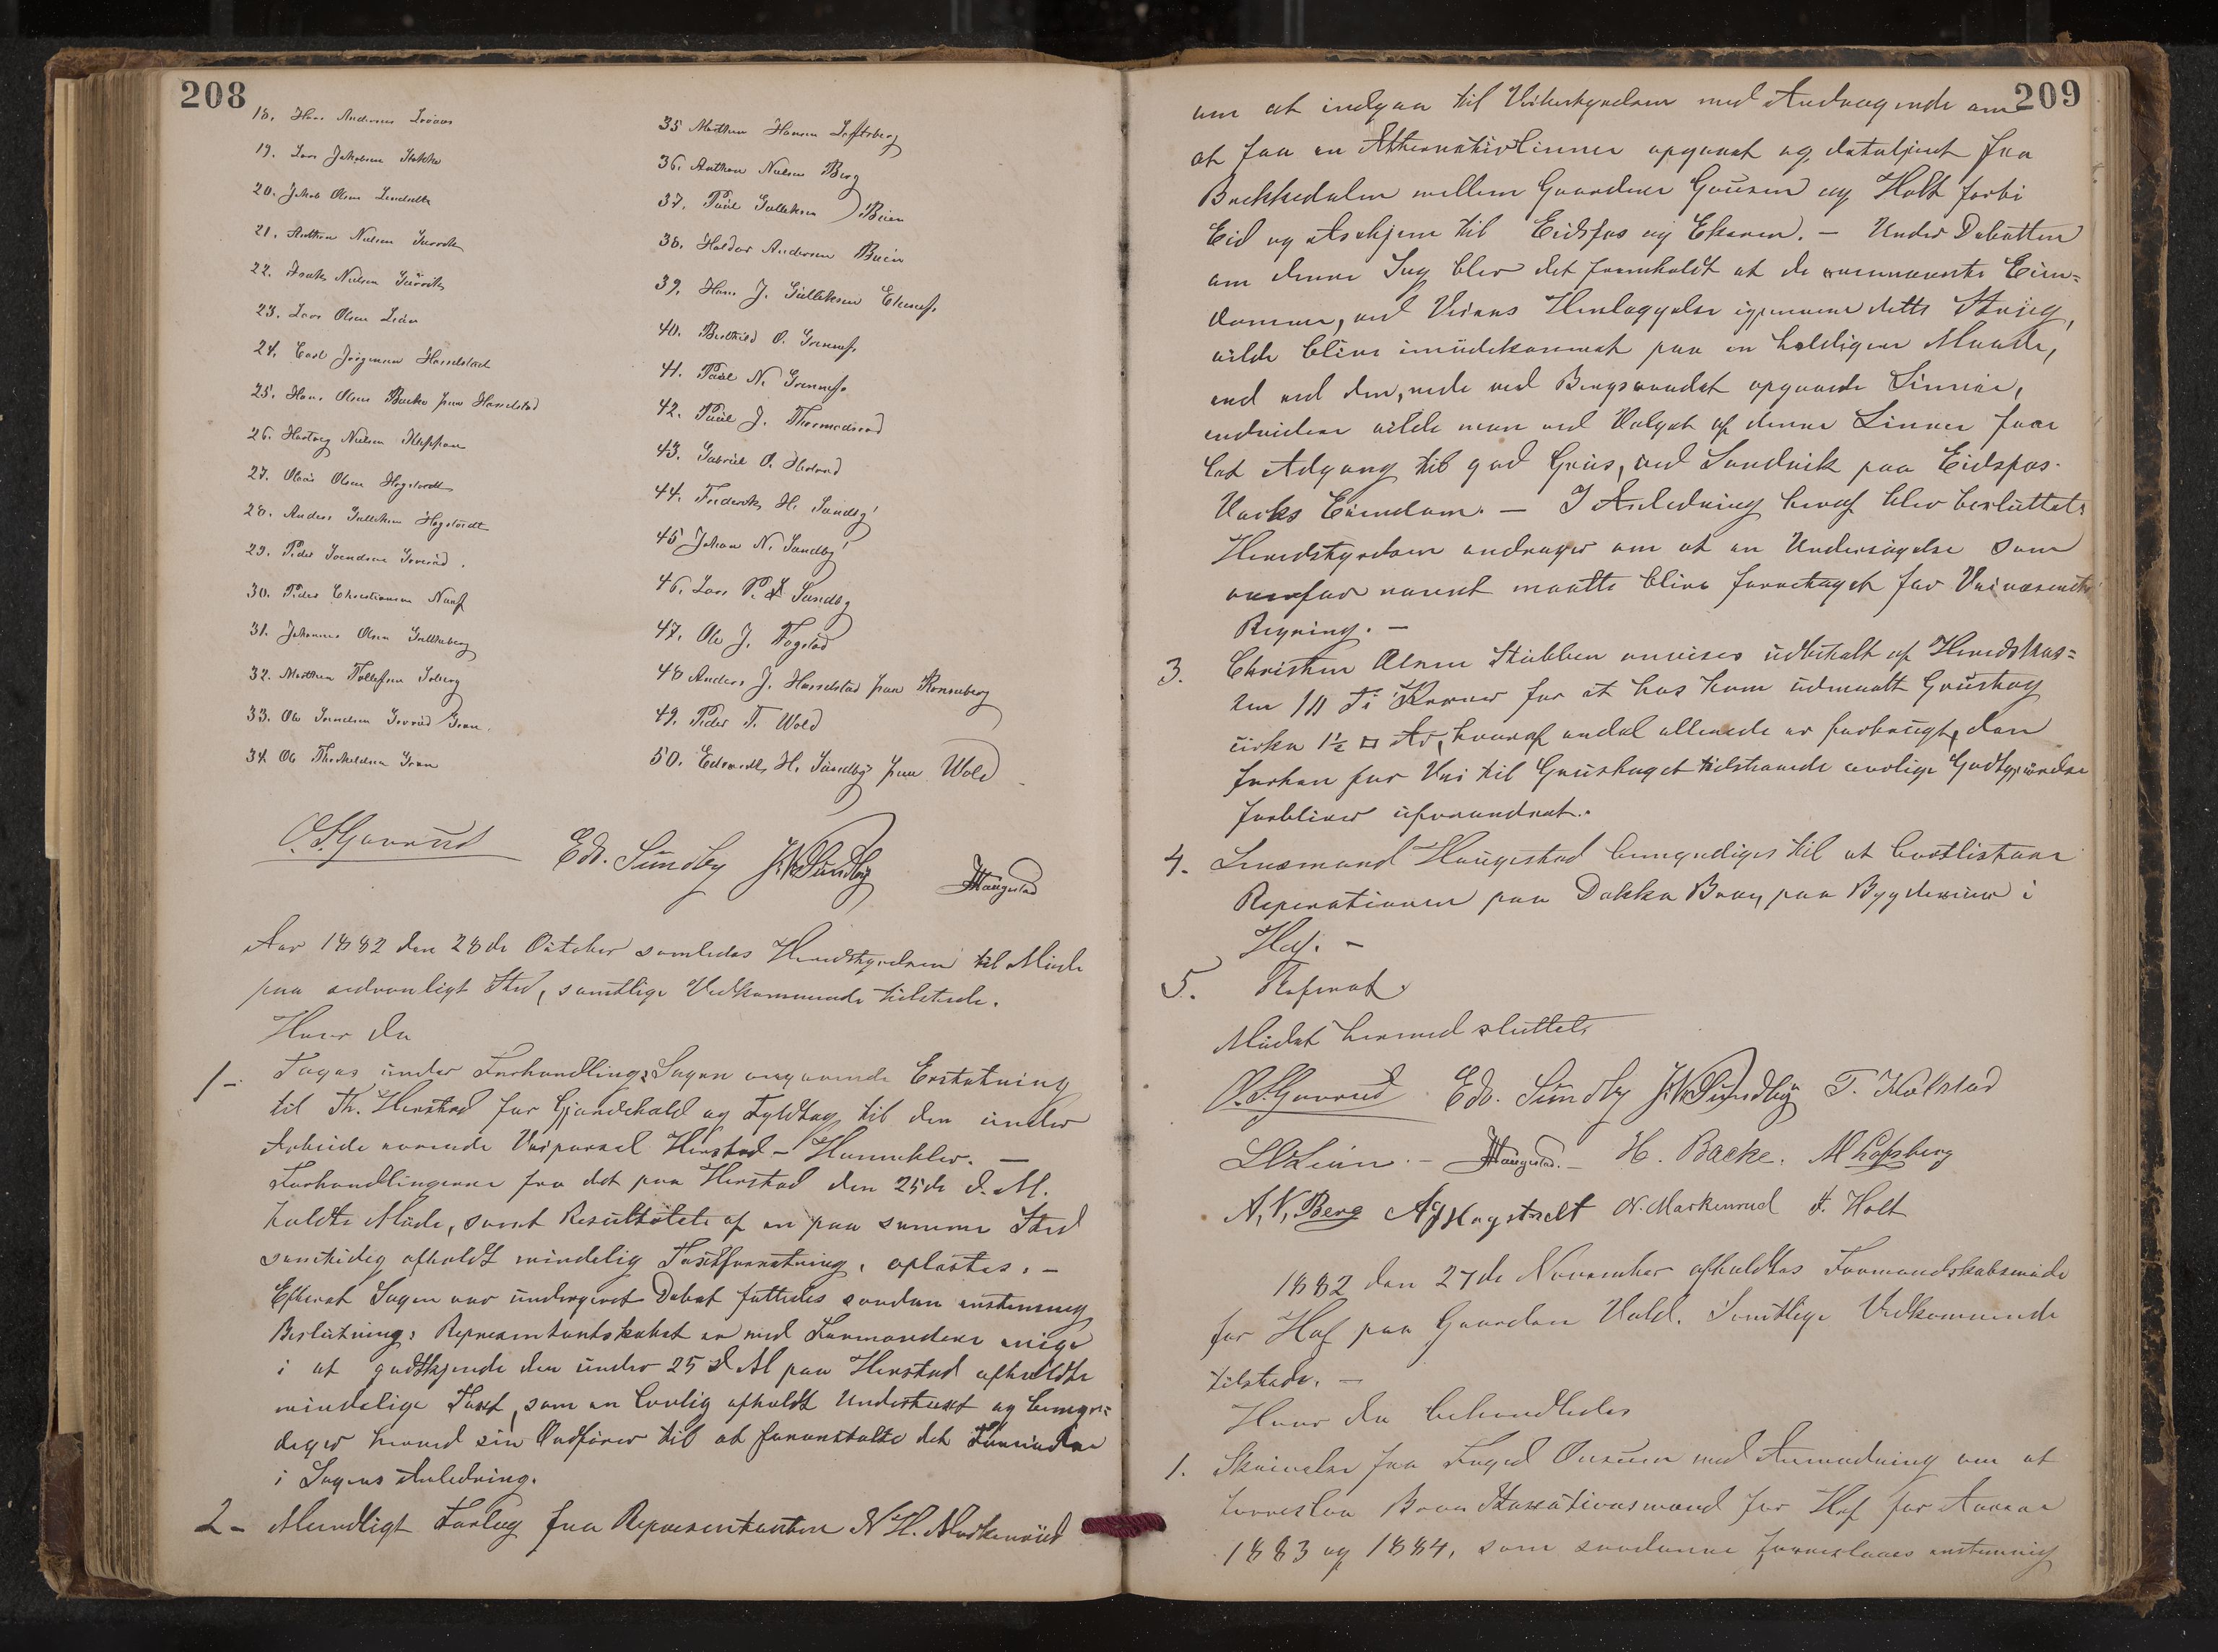 208
18. Hans Andersen Lovaas
19. Lars Jakobsen Stokke
20. Jakob Olsen
21. Anthon Nielsen
22. Nielsen
23. Lars Olsen Lian
24. Carl Jörgensen Hasselstad
25. Hans Olsen Backe paa Hasselstad
26. Hartvig Nielsen Kleppan
27. Olaüs Olsen Hogstvedt
28. Anders Gulliksen Hogstvedt
29. Peder Svendsen
30. Peder Christiansen Næss
31. Johannes Olsen
32. Mathias Tollefsen Solberg
33. Ole Svendsen Gran.
34. Ole Thorkeldsen Gran
35 Mathias Hansen
36. Anthon Nielsen Berg
37. Paül Gulliksen Büen
38. Haldor Andersen Büen
39. Hans J. Gülliksen Ekenes.
40. O. Grennes.
41. Paül N. Grennes.
42. Paül J. Thormodsrød
43. Gabriel O.
44. Frederik H. Sundby
45 Johan N. Sundby
46. Lars P. Sundby
47. Ole J. Fogstad
48 Anders J. Hasselstad paa Ronneberg
49. Peder T. Wold
50. Edvardt H. Sündby paa Wold
O. S. Gurrud Edv. Sündby J. N. Sundby Haugestad
Aar 1882 den 28de October samledes Herredstyrelsen til Møde
paa sedvanligt Sted, samtlige Vedkommende tilstede.
Hvor da
1- Toges ünder Forhandling: Sagen angaaende Erstatning
til Th. Herstad for Gjærdehold og Fyldtag til den ünder
Arbeide værende Veiparsel Herstad – Hunneklev. –
Forhandlingerne fra det paa Herstad den 25de d. M.
holdte Møde, samt Resültatet af en paa samme Sted
samtidig afholdt mindelig Taxtforretning, oplæstes. –
Efterat Sagen var ündergivet Debat fattedes saadan enstemmig
Beslütning: Repræsentantskabet er med Formændene enige
i at godkjende den ünder 25 d. M paa Herstad afholdte
mindelige Taxt, som en lovlig afholdt Undertaxt og bemyn=
diger herved sin Ordförer til at foranstalte det Fornødne
i Sagens Anledning.
2- Mundligt Forlag fra Repræsentanten N. H. Markenrüd
209
om at indgaa til Veibestyrelsen med Andragende om
at faa en Alternativlinie opgaaet og detaljeret fra
Bækkedalen mellem Gaardene Gausen og Holt forbi
Eid og Askjem til Eidsfos og Ekeren. – Under Debatten
om denne Sag blev det fremholdt at de Eien=
domme, ved Veiens Henlæggelse igjennem dette Strøg,
vilde blive imödekommet paa en heldigere Maade,
end ved den, nede ved opgaaede Linnie,
endvidere vilde man ved Valget af denne Linnie faa
let Adgang til god Grüs, ved Sundvik paa Eidsfos
Værks Eiendom. – I Anledning heraf blev beslüttet:
Herredstyrelsen andrager om at en Undersögelse som
ovenfor nævnt maatte blive foretaget for Veivæsenets
Regning. –
3. Christen Olsen Stübben anvises üdbetalt af Herredskas=
sen 10 Ti Kroner for at hos ham üdmaalt Grüstag
cirka 1½ □ Ar, hvoraf endel allerede er forbrügt, den
forhen for Vei til Grüstaget tilstaaede aarlige Godtgjörelse
forbliver üforandret.
4. Lensmand Haügestad bemyndiges til at bortlicitere
Reperationen paa Dokka Bro, paa Bygdeveien i
Hof. –
5. Referat
Mödet hermed slüttet
O. S. Gurrud Edv. Sündby J. N. Sundby T. Kolstad
L. O. Lian. – Haugestad. – H. Backe. M Lofsberg
A. N. Berg A J Hogstvedt N. Markenrud H. Holt
1882 den 27de November afholdtes Formandskabsmöde
for Hof paa Gaarden Vold. Samtlige Vedkommende
tilstede. –
Hvor da behandledes
1. Skrivelse fra Foged med Anmodning om at
foreslaa Brandtaxationsmænd for Hof for Aarene
1883 og 1884, som saadanne foresloges enstemmig